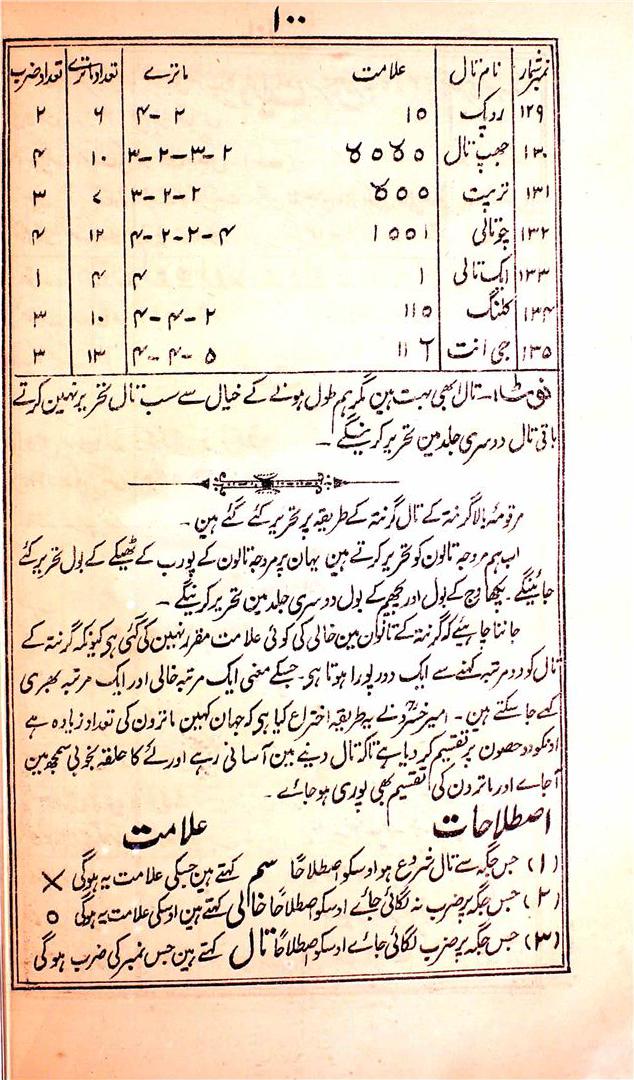 ۱۰۰
نمبر شمار نام تال علامت ماترے تعداد ماترے تعداد ضرب
۱۲۹ روپک ۱۵ ۲ -۴ ۶ ۲
۱۳۰ جھپ تال ۲-۳-۲-۳ ۱۰ ۴
۱۳۱ ترپت ۲-۲-۳ ۷ ۳
۱۳۲ چوتالی ۱۵۵۱ ۴-۲-۲-۴ ۱۲ ۴
۱۳۳ اک تالی ۱ ۴ ۴ ۱
۱۳۴ کلنگ ۵۱۱ ۲-۴-۴ ۱۰ ۳
۱۳۵ جی انت ۵-۴-۴ ۱۳ ۳
نوٹ ۔ تال ابھی بہت ہین مگر ہم طول ہونے کے خیال سے سب تال تحریر نہین کرتے
باقی تال دوسری جلد مین تحریر کرینگے ۔
مرقومۂ بالا گرنتہ کے تال گرنتہ کے طریقہ پر تحریر کئے گئے ہین ۔
اب ہم مروجہ تالون کو تحریر کرتے ہین یہان پر مروجہ تالون کے پورب کے ٹھیکے کے بول تحریر کئے
جائینگے ۔ پکھاوج کے بول اور پچھم کے بول دوسری جلد مین تحریر کرینگے ۔
جاننا چاہیئے کہ گرنتہ کے تالون مین خالی کی کوئی علامت مقرر نہین کی گئی ہی کیونکہ گرنتہ کے
تال کو دو مرتبہ کہنے سے ایک دور پورا ہوتا ہی ۔ جسکے معنی ایک مرتبہ خالی اور ایک مرتبہ بھری
کہے جا سکتے ہین ۔ امیر خسرو نے یہ طریقہ اختراع کیا ہی کہ جہان کہین ماترون کی تعداد زیادہ ہے
اونکو دو حصون پر تقسیم کر دیا ہے تاکہ تال دینے مین آسانی رہے اور لے کا حلقہ بخوبی سمجھ مین
آجاے اور ماترون کی تقسیم بھی پوری ہو جاۓ ۔
اصطلاحات علامت
(۱) جس جگہ سے تال شروع ہو اوسکو اصطلاحًا سم کہتے ہین جسکی علامت یہ ہوگی ×
(۲) جس جگہ پر ضرب نہ لگائی جاۓ اوسکو اصطلاحًا خالی کہتے ہین اوسکی علامت یہ ہوگی o
(۳) جس جگہ پر ضرب لگائی جاۓ اوسکو اصطلاحًا تال کہتے ہین جس نمبر کی ضرب ہوگی